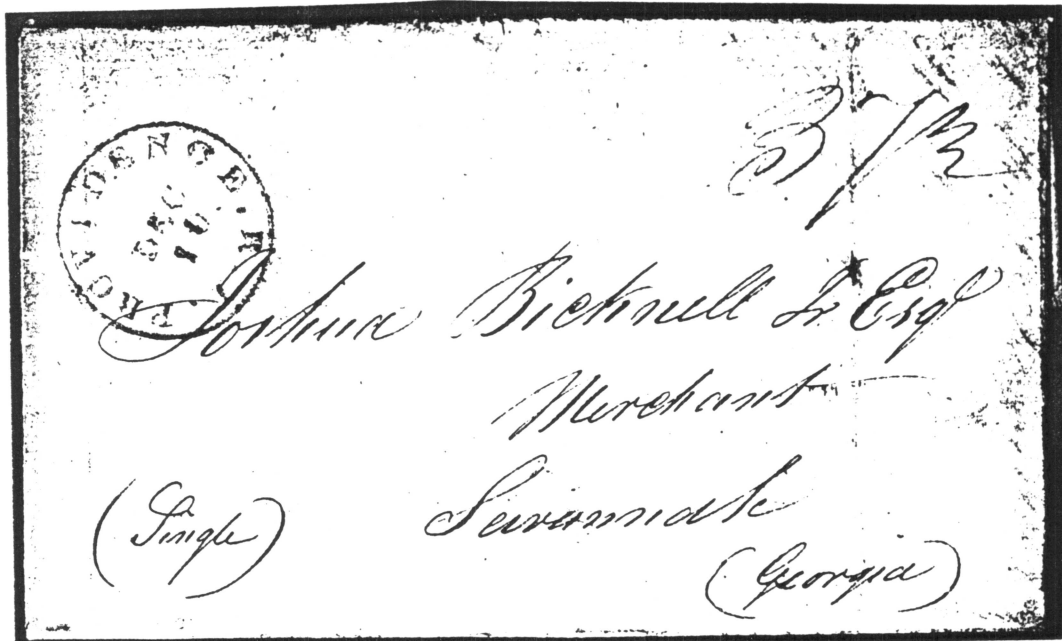 PROVIDENCE. R. I.
DEC
10
Joshua Bicknell Jr Esqr
Merchant
Savannah
(Single)
(Georgia)